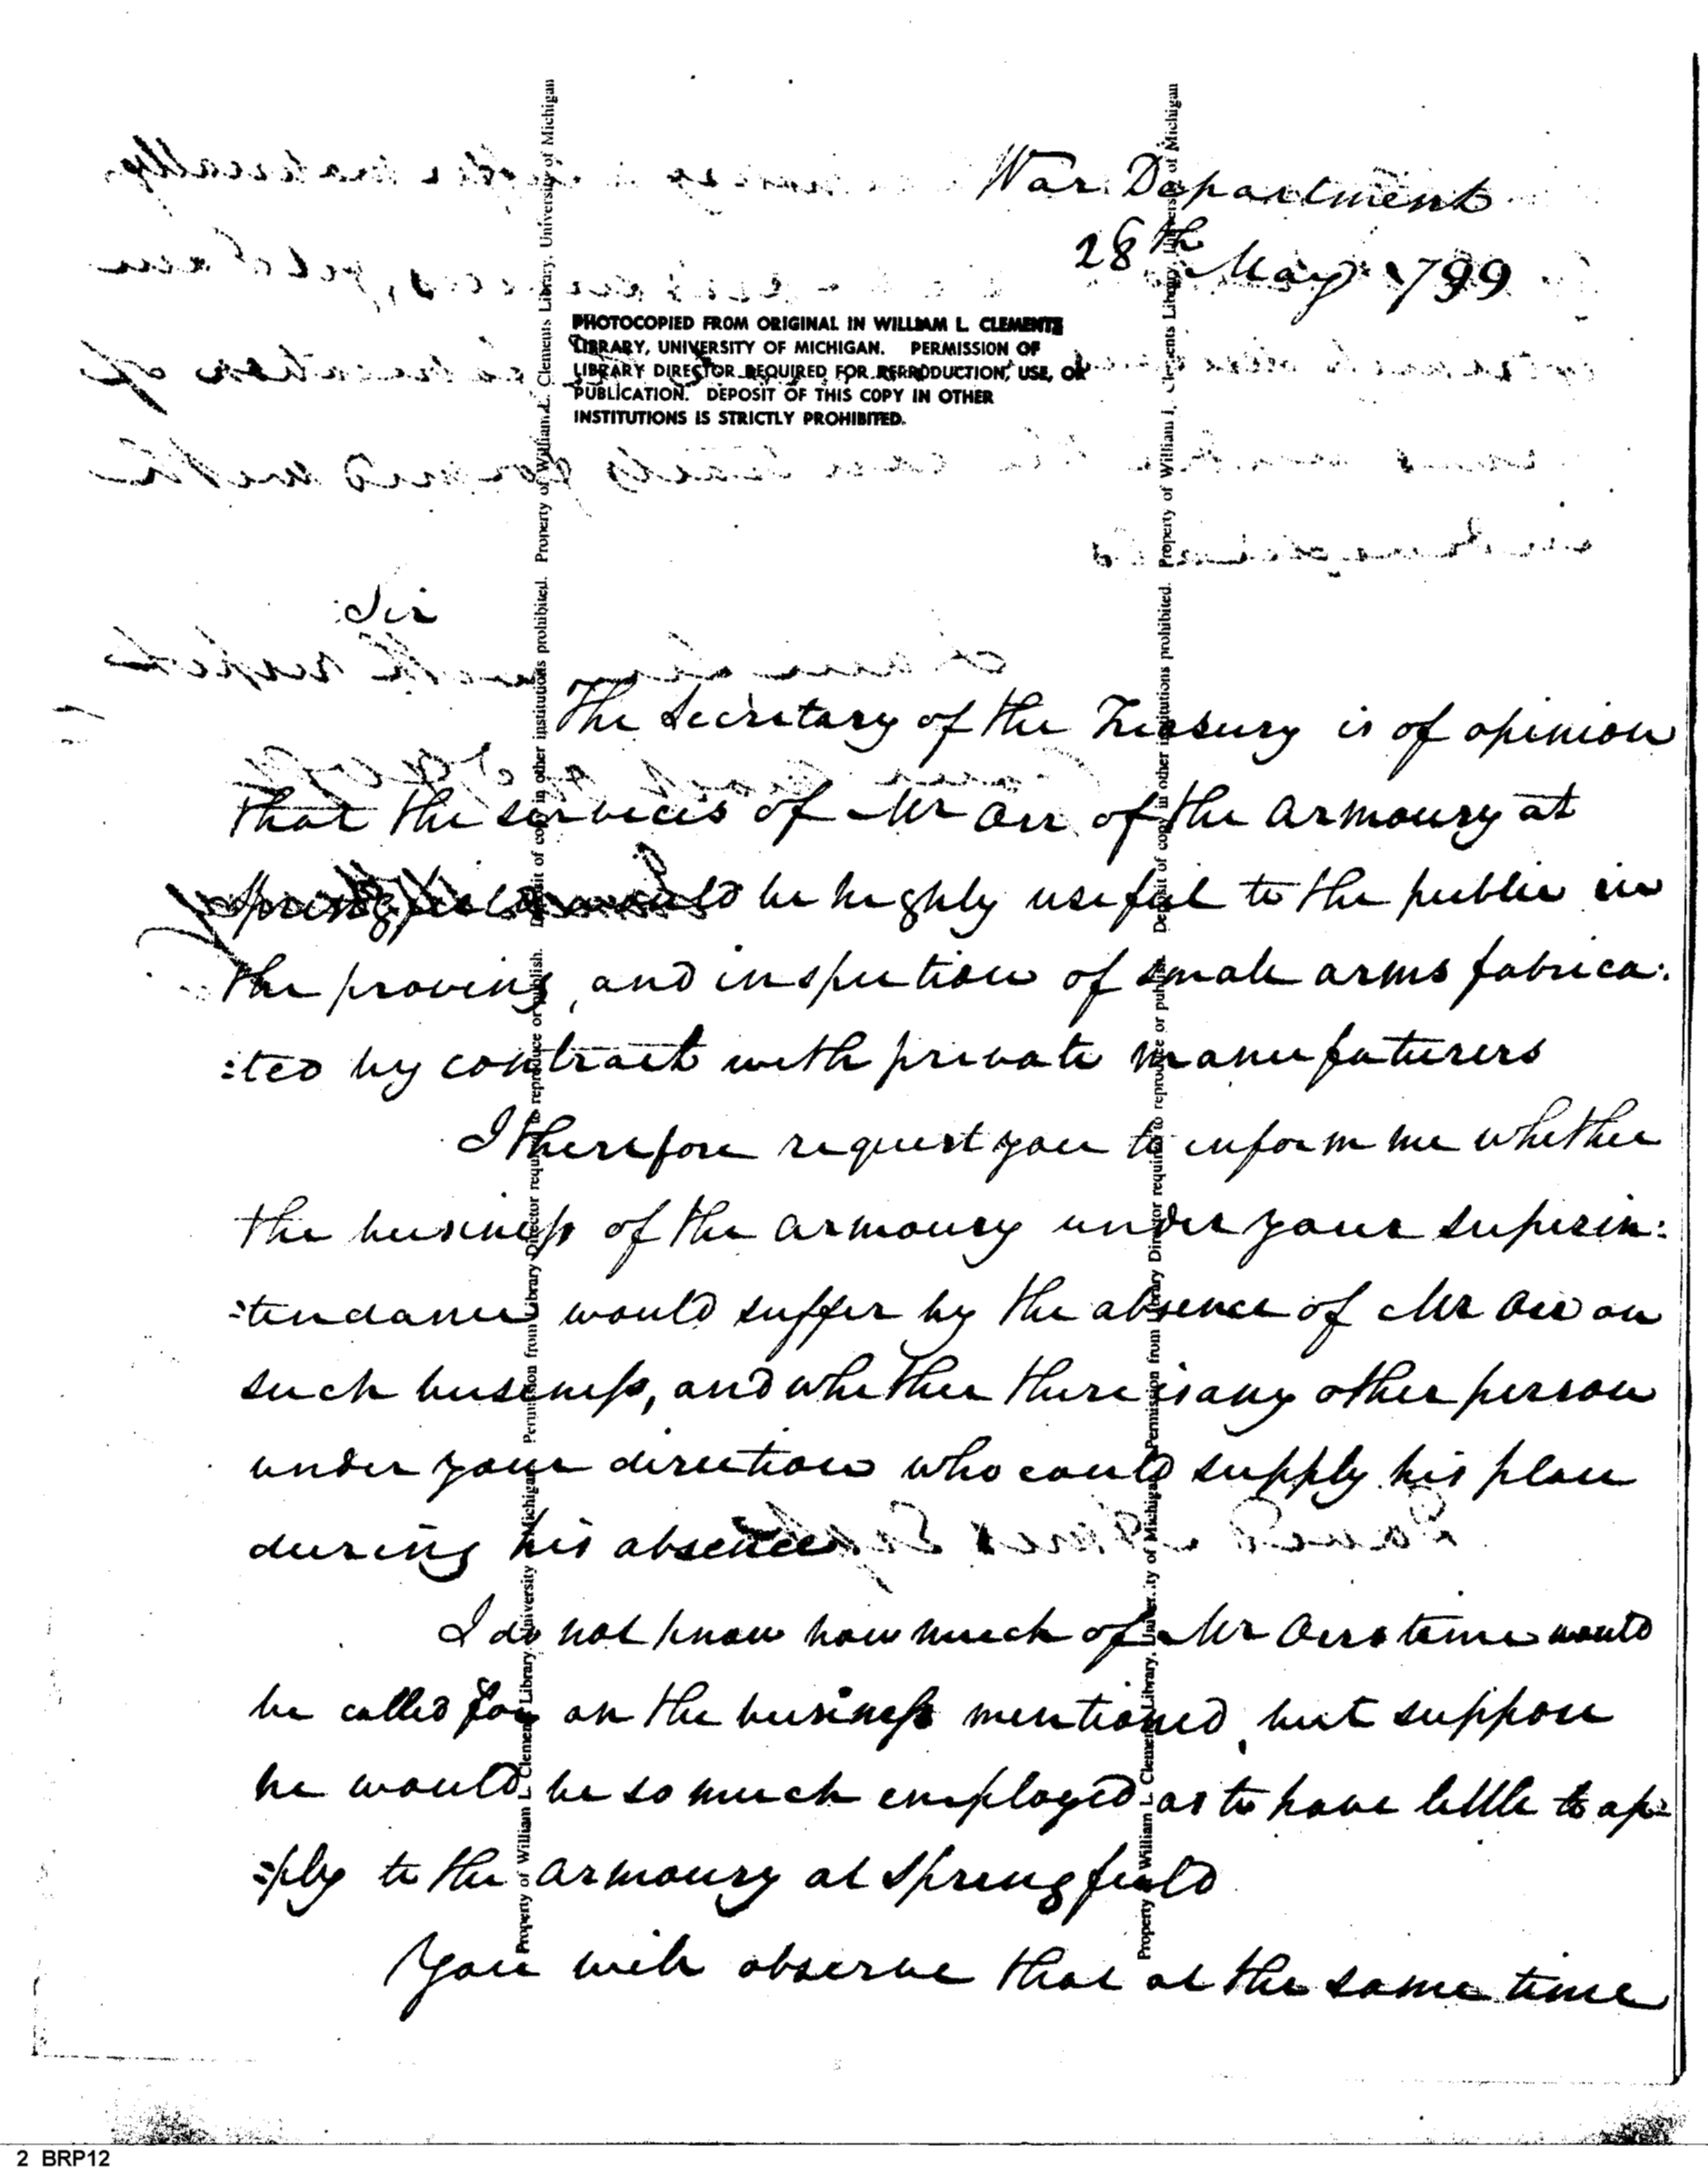 War Department
28th May 1799
PHOTOCOPIED FROM ORIGINAL IN WILLIAM L. CLEMENTS
LIBRARY, UNIVERSITY OF MICHIGAN. PERMISSION OF
LIBRARY DIRECTOR REQUIRED FOR REPRODUCTION, USE, OR
PUBLICATION. DEPOSIT OF THIS COPY IN OTHER
INSTITUTIONS IS STRICTLY PROHIBITED.
Sir
The Secretary of the Treasury is of opinion
that the services of Mr Orr of the armoury at
Springfield would be highly useful to the public in
the proving, and inspection of small arms fabrica:
:ted by contract with private manufacturers
I therefore request you to inform me whether
the business of the armoury under your superin:
:tendance would suffer by the absence of Mr Orr on
such business, and whether there is any other person
under your direction who could supply his place
during his absence.
I do not know how much of Mr Orrs time would
be called for on the business mentioned, but suppose
he would be so much employed as to have little to ap:
:ply to the armoury at Springfield
You will observe that at the same time
Property of William L. Clements Library, University of Michigan. Permission from Library Director required to reproduce or publish. Deposit of copy in other institutions prohibited. Property of William L. Clements Library, University of Michigan
Property of William L. Clements Library, University of Michigan. Permission from Library Director required to reproduce or publish. Deposit of copy in other institutions prohibited. Property of William L. Clements Library, University of Michigan
2 BRP12